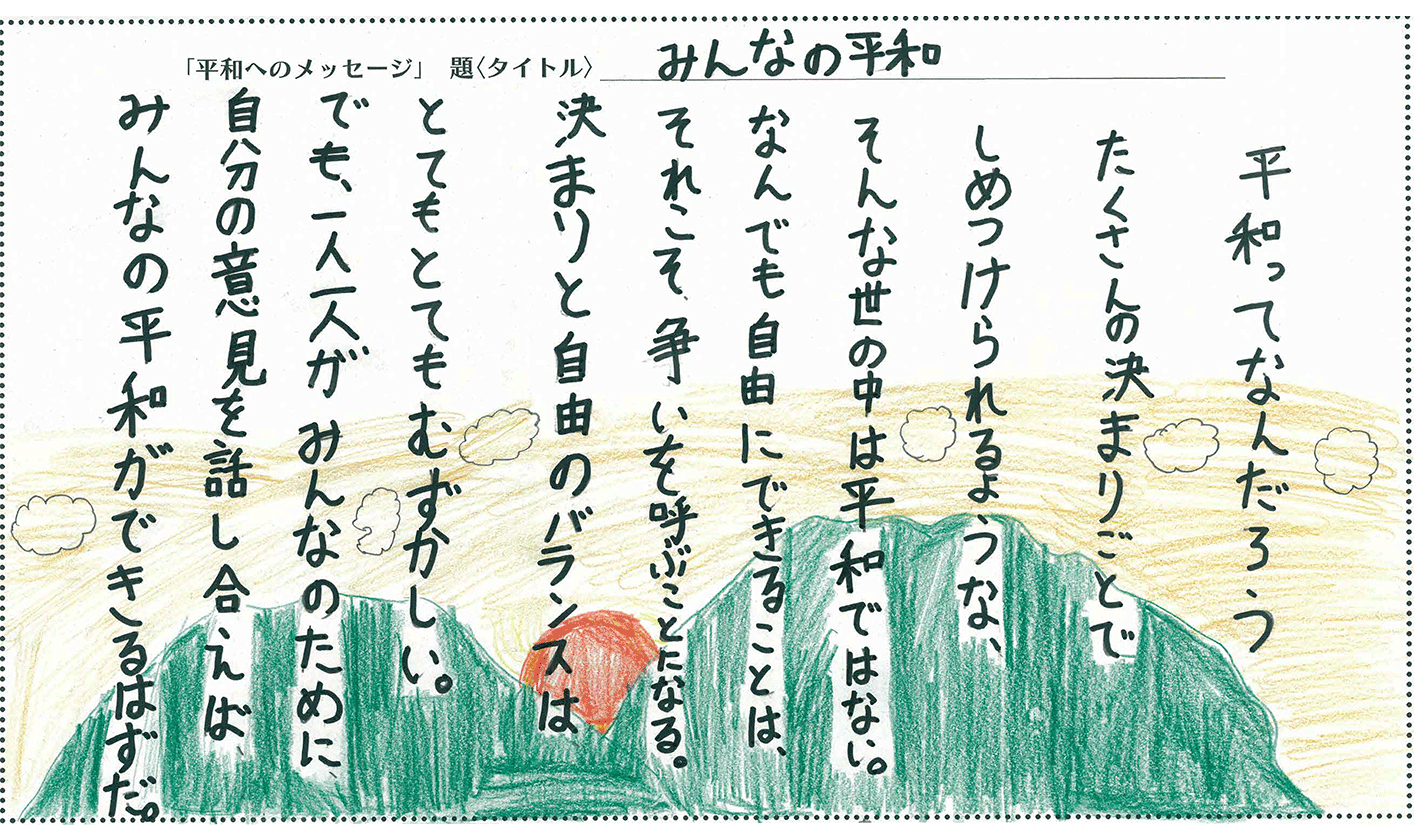 「平和へのメッセージ」 題〈タイトル〉 みんなの平和
平和ってなんだろう
たくさんの決まりごとで
しめつけられるような、
そんな世の中は平和ではない。
なんでも自由にできることは、
それこそ、争いを呼ぶことになる。
決まりと自由のバランスは
とてもとてもむずかしい。
でも、一人一人がみんなのために、
自分の意見を話し合えば、
みんなの平和ができるはずだ。